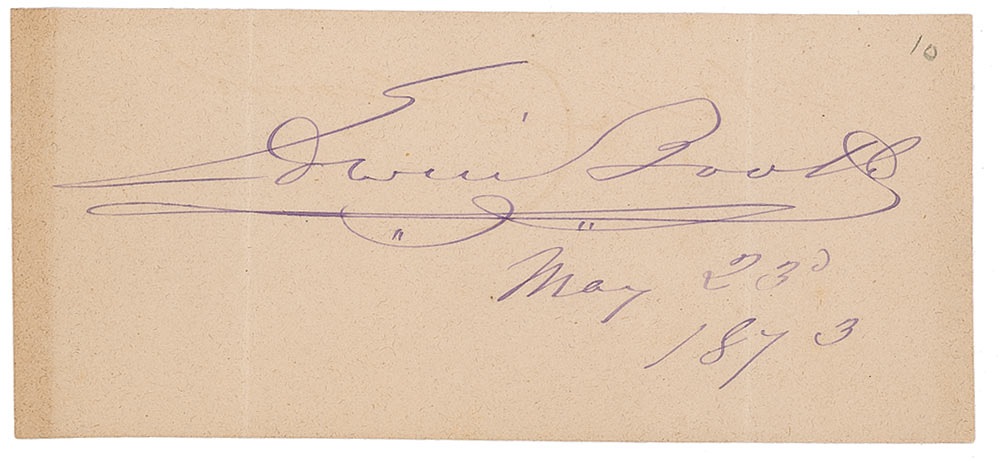 10
Edwin Booth
" "
May 23d
1873